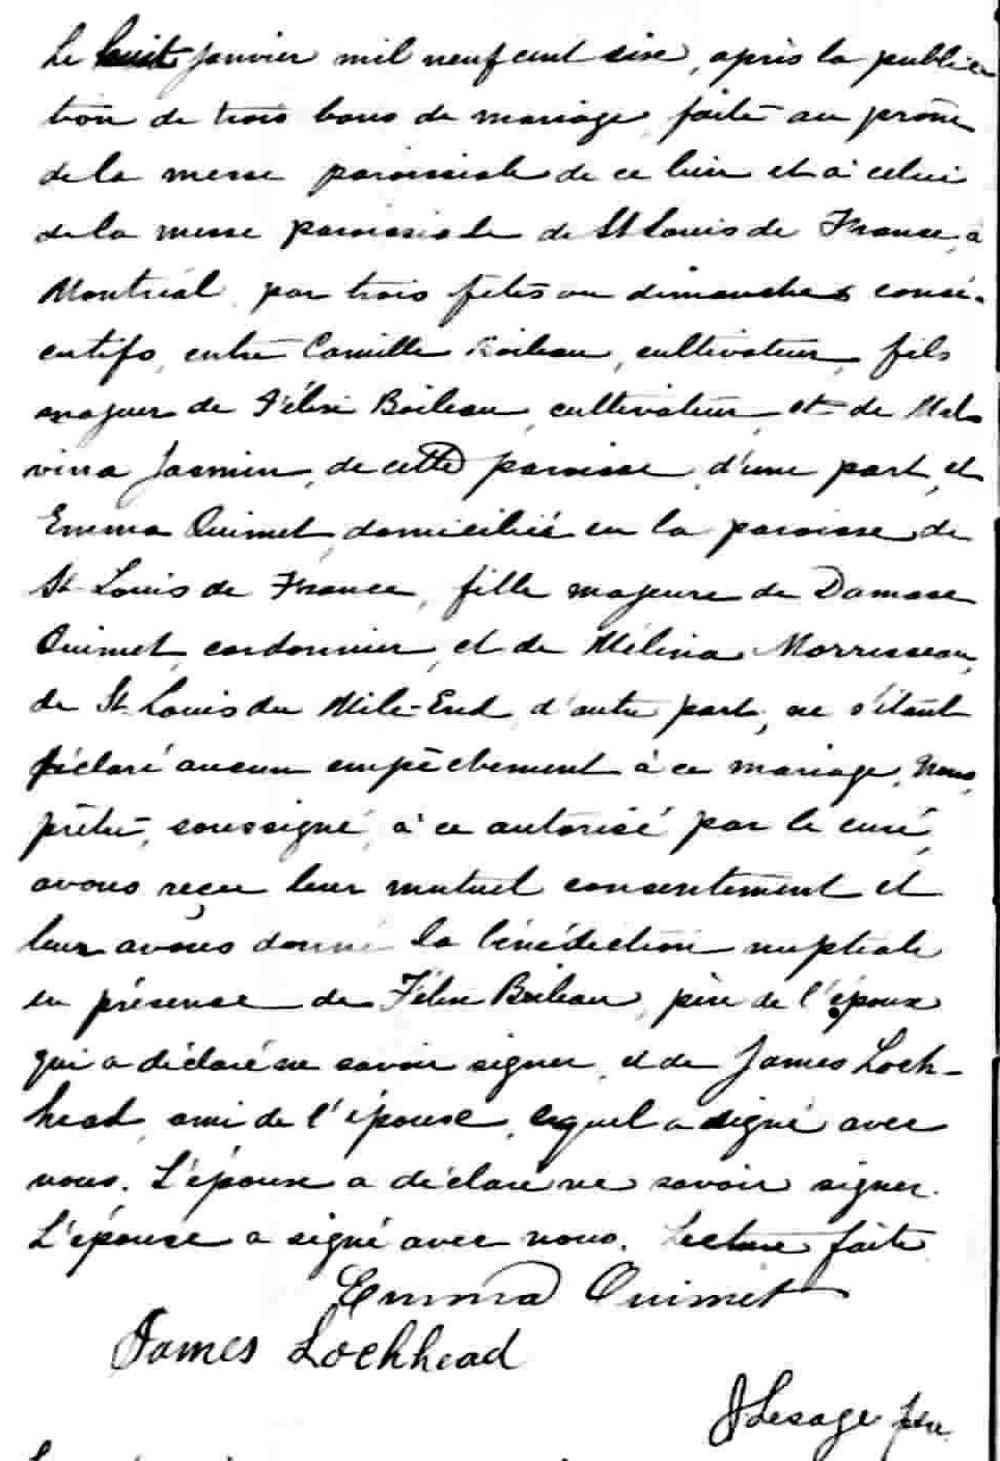 Le huit janvier mil neuf cent six, après la publica
tion de trois bans de mariage faite au prône
de la messe paroissiale de ce lieu et à celui
de la messe paroissiale de St Louis de France, à
Montréal par trois fêtes ou dimanches consé-
cutifs, entre Camille Boileau, cultivateur, fils
majeur de Félix Boileau, cultivateur, et de Mal
vina Jasmin, de cette paroisse, d'une part, et
Emma Ouimet, domiciliée en la paroisse de
St Louis de France, fille majeure de Damase
Ouimet, cordonnier, et de Mélina Morrisseau,
de St. Louis du Mile-End, d'autre part, ne s'étant
déclaré aucun empêchement à ce mariage, Nous,
prêtre, soussigné, à ce autorisé par le curé,
avons reçu leur mutuel consentement et
leur avons donné la bénédiction nuptiale
en présence de Félix Boileau, père de l'époux
qui a déclaré ne savoir signer, et de James Loch-
head, ami de l'épouse, lequel a signé avec
nous. L'époux a déclaré ne savoir signer.
L'épouse a signé avec nous. Lecture faite
Emma Ouimet
James Lochhead
J Lesage ptre